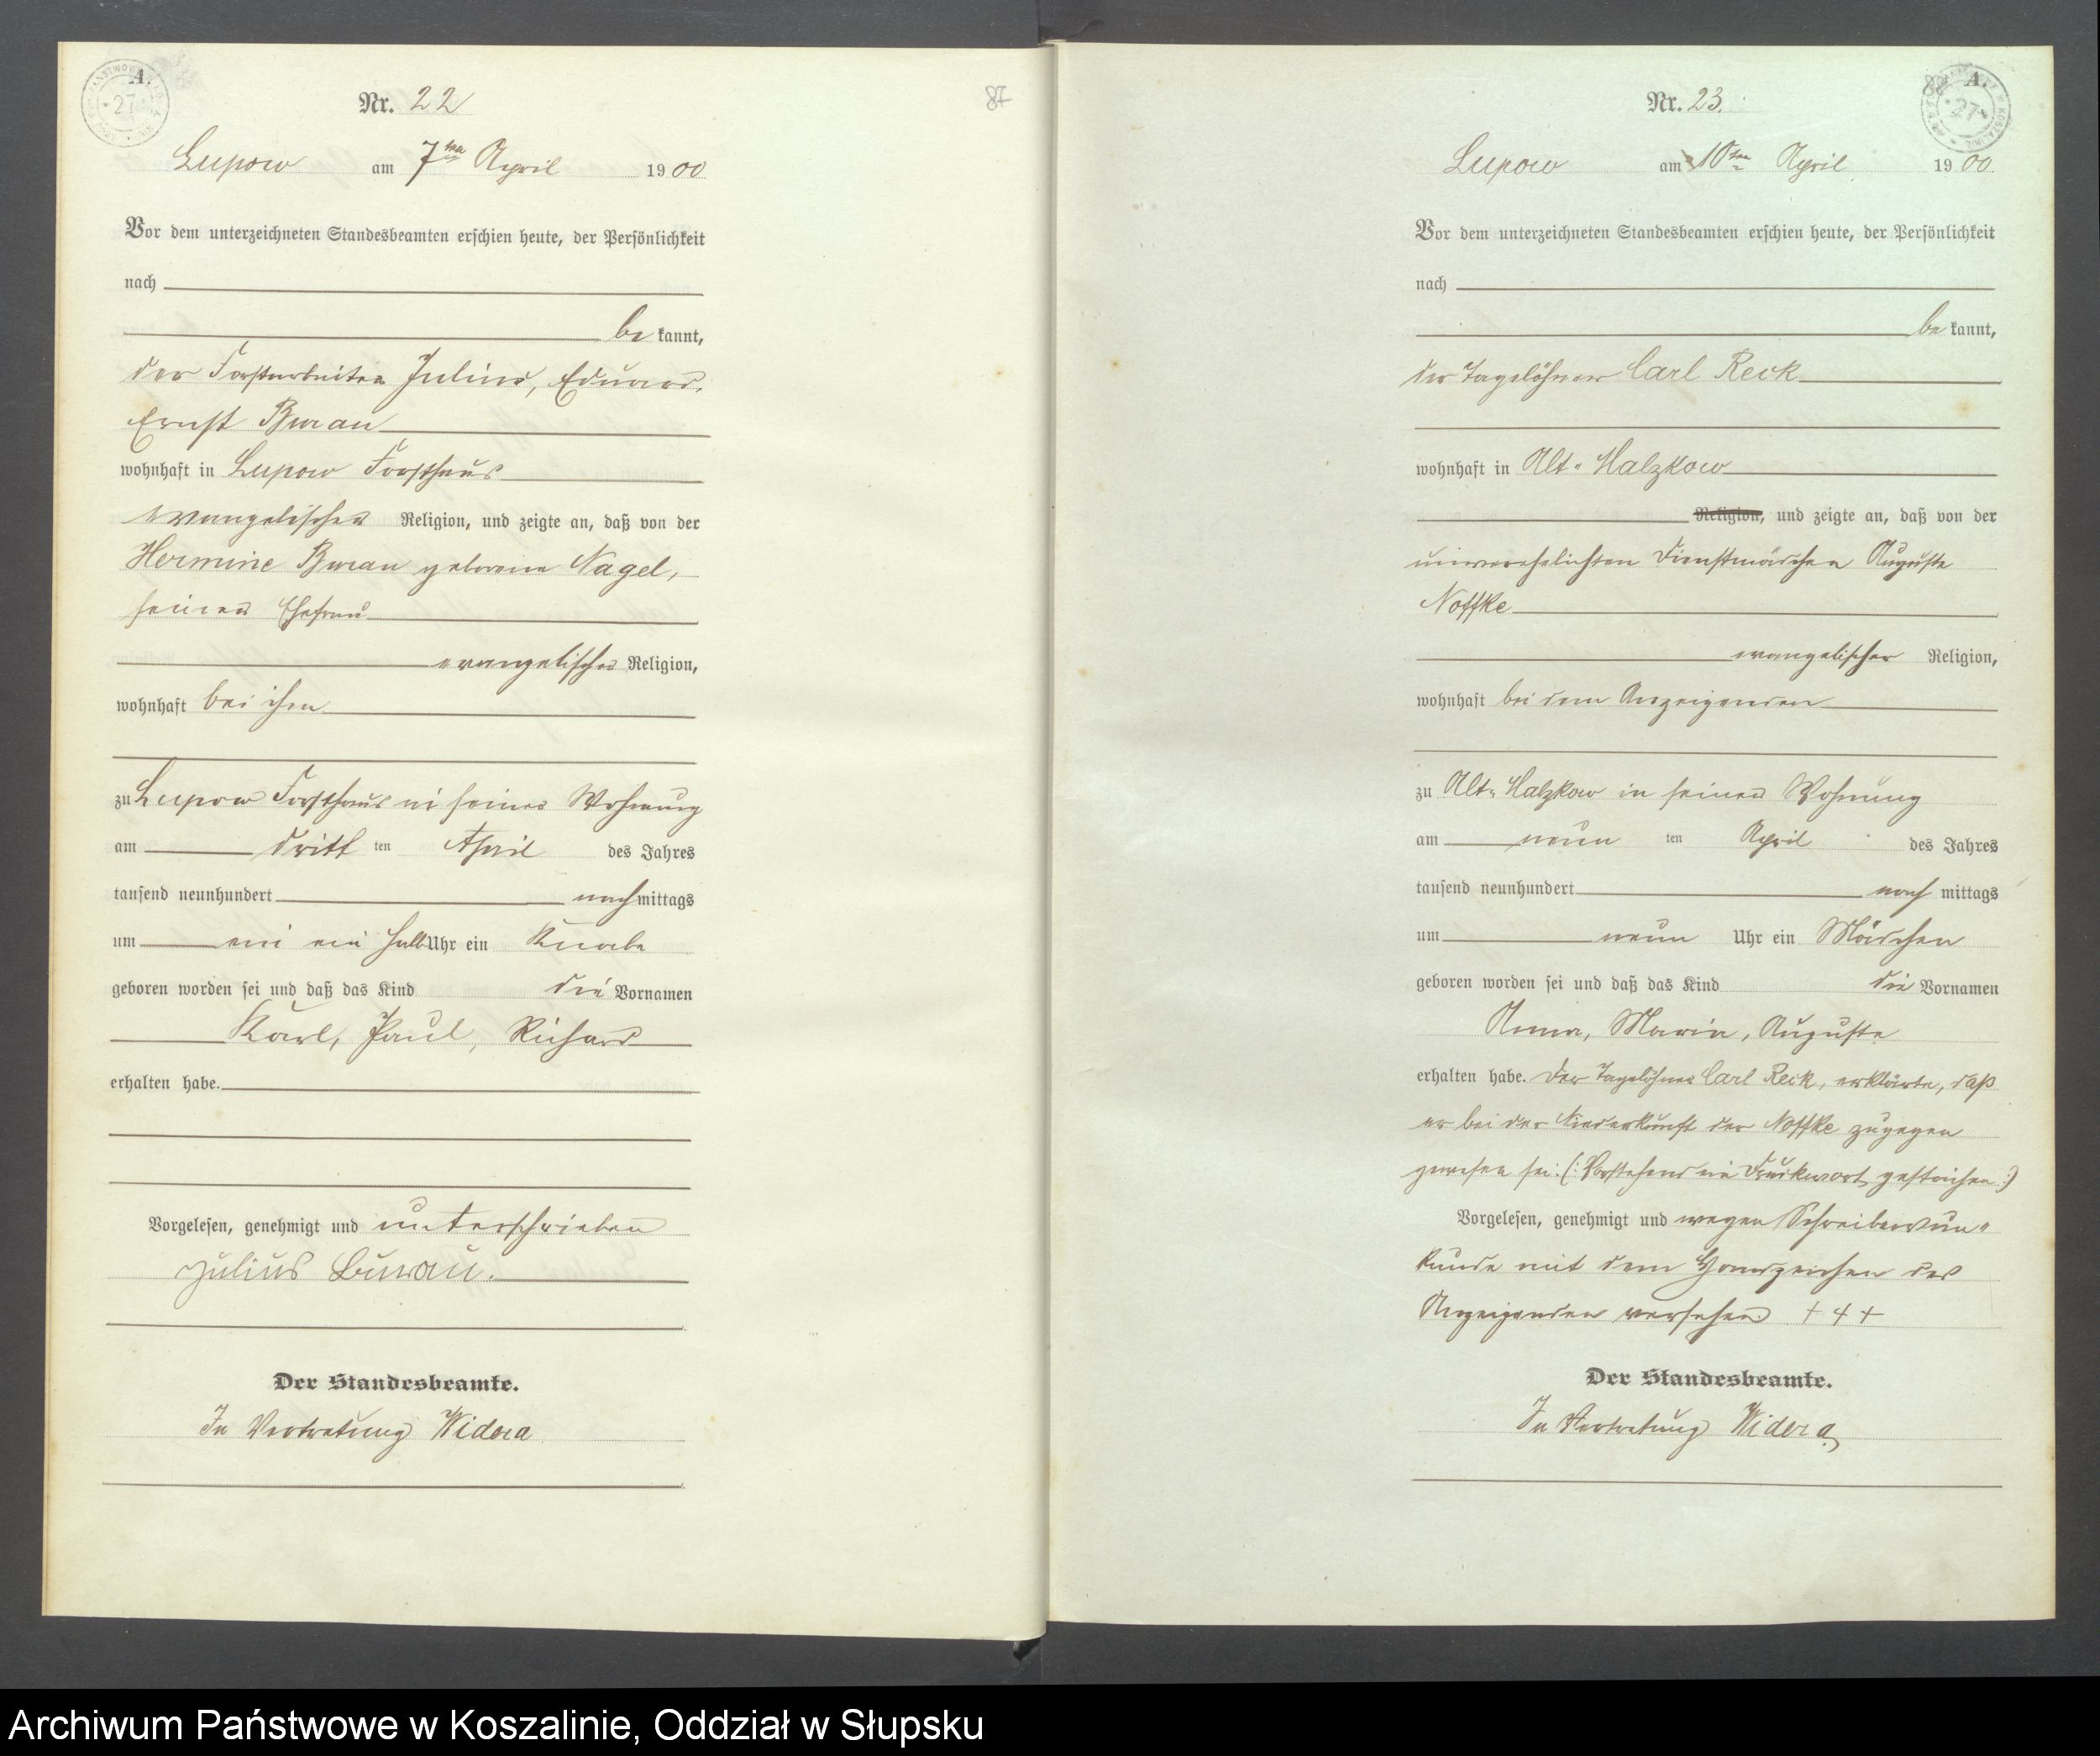 A.
27
Nr. 22
Lupow am 7ten April 1900
Vor dem unterzeichneten Standesbeamten erschien heute, der Persönlichkeit
nach
be kannt,
der Forstarbeiter Julius, Eduard,
Ernst Burau
wohnhaft in Lupow Forsthaus
evangelischer Religion, und zeigte an, daß von der
Hermine Burau geborene Nagel,
seiner Ehefrau
evangelischer Religion,
wohnhaft bei ihm
zu Lupow Forsthaus in seiner Wohnung
am dritt ten April des Jahres
tausend neunhundert nach mittags
um ein ein halb Uhr ein Knabe
geboren worden sei und daß das Kind die Vornamen
Karl, Paul, Richard
erhalten habe.
Vorgelesen, genehmigt und unterschrieben
Julius Burau.
Der Standesbeamte.
In Vertretung Widera
87
88
A.
27
Nr. 23.
Lupow am 10ten April 1900
Vor dem unterzeichneten Standesbeamten erschien heute, der Persönlichkeit
nach
be kannt,
der Tagelöhner Carl Reck
wohnhaft in Alt-Halzkow
Religion, und zeigte an, daß von der
unverehelichten Dienstmädchen Auguste
Noffke
evangelischer Religion,
wohnhaft bei dem Anzeigenden
zu Alt-Halzkow in seiner Wohnung
am neun ten April des Jahres
tausend neunhundert nach mittags
um neun Uhr ein Mädchen
geboren worden sei und daß das Kind die Vornamen
Anna, Marie, Auguste
erhalten habe. Der Tagelöhner Carl Reck, erklärte, daß
er bei der Niederkunft der Noffke zugegen
gewesen sei. (: Vorstehend ein Druckwort gestrichen :)
Vorgelesen, genehmigt und wegen Schreibensun-
kunde mit dem Handzeichen des
Anzeigenden versehen + + +
Der Standesbeamte.
In Vertretung Widera
Archiwum Państwowe w Koszalinie, Oddział w Słupsku